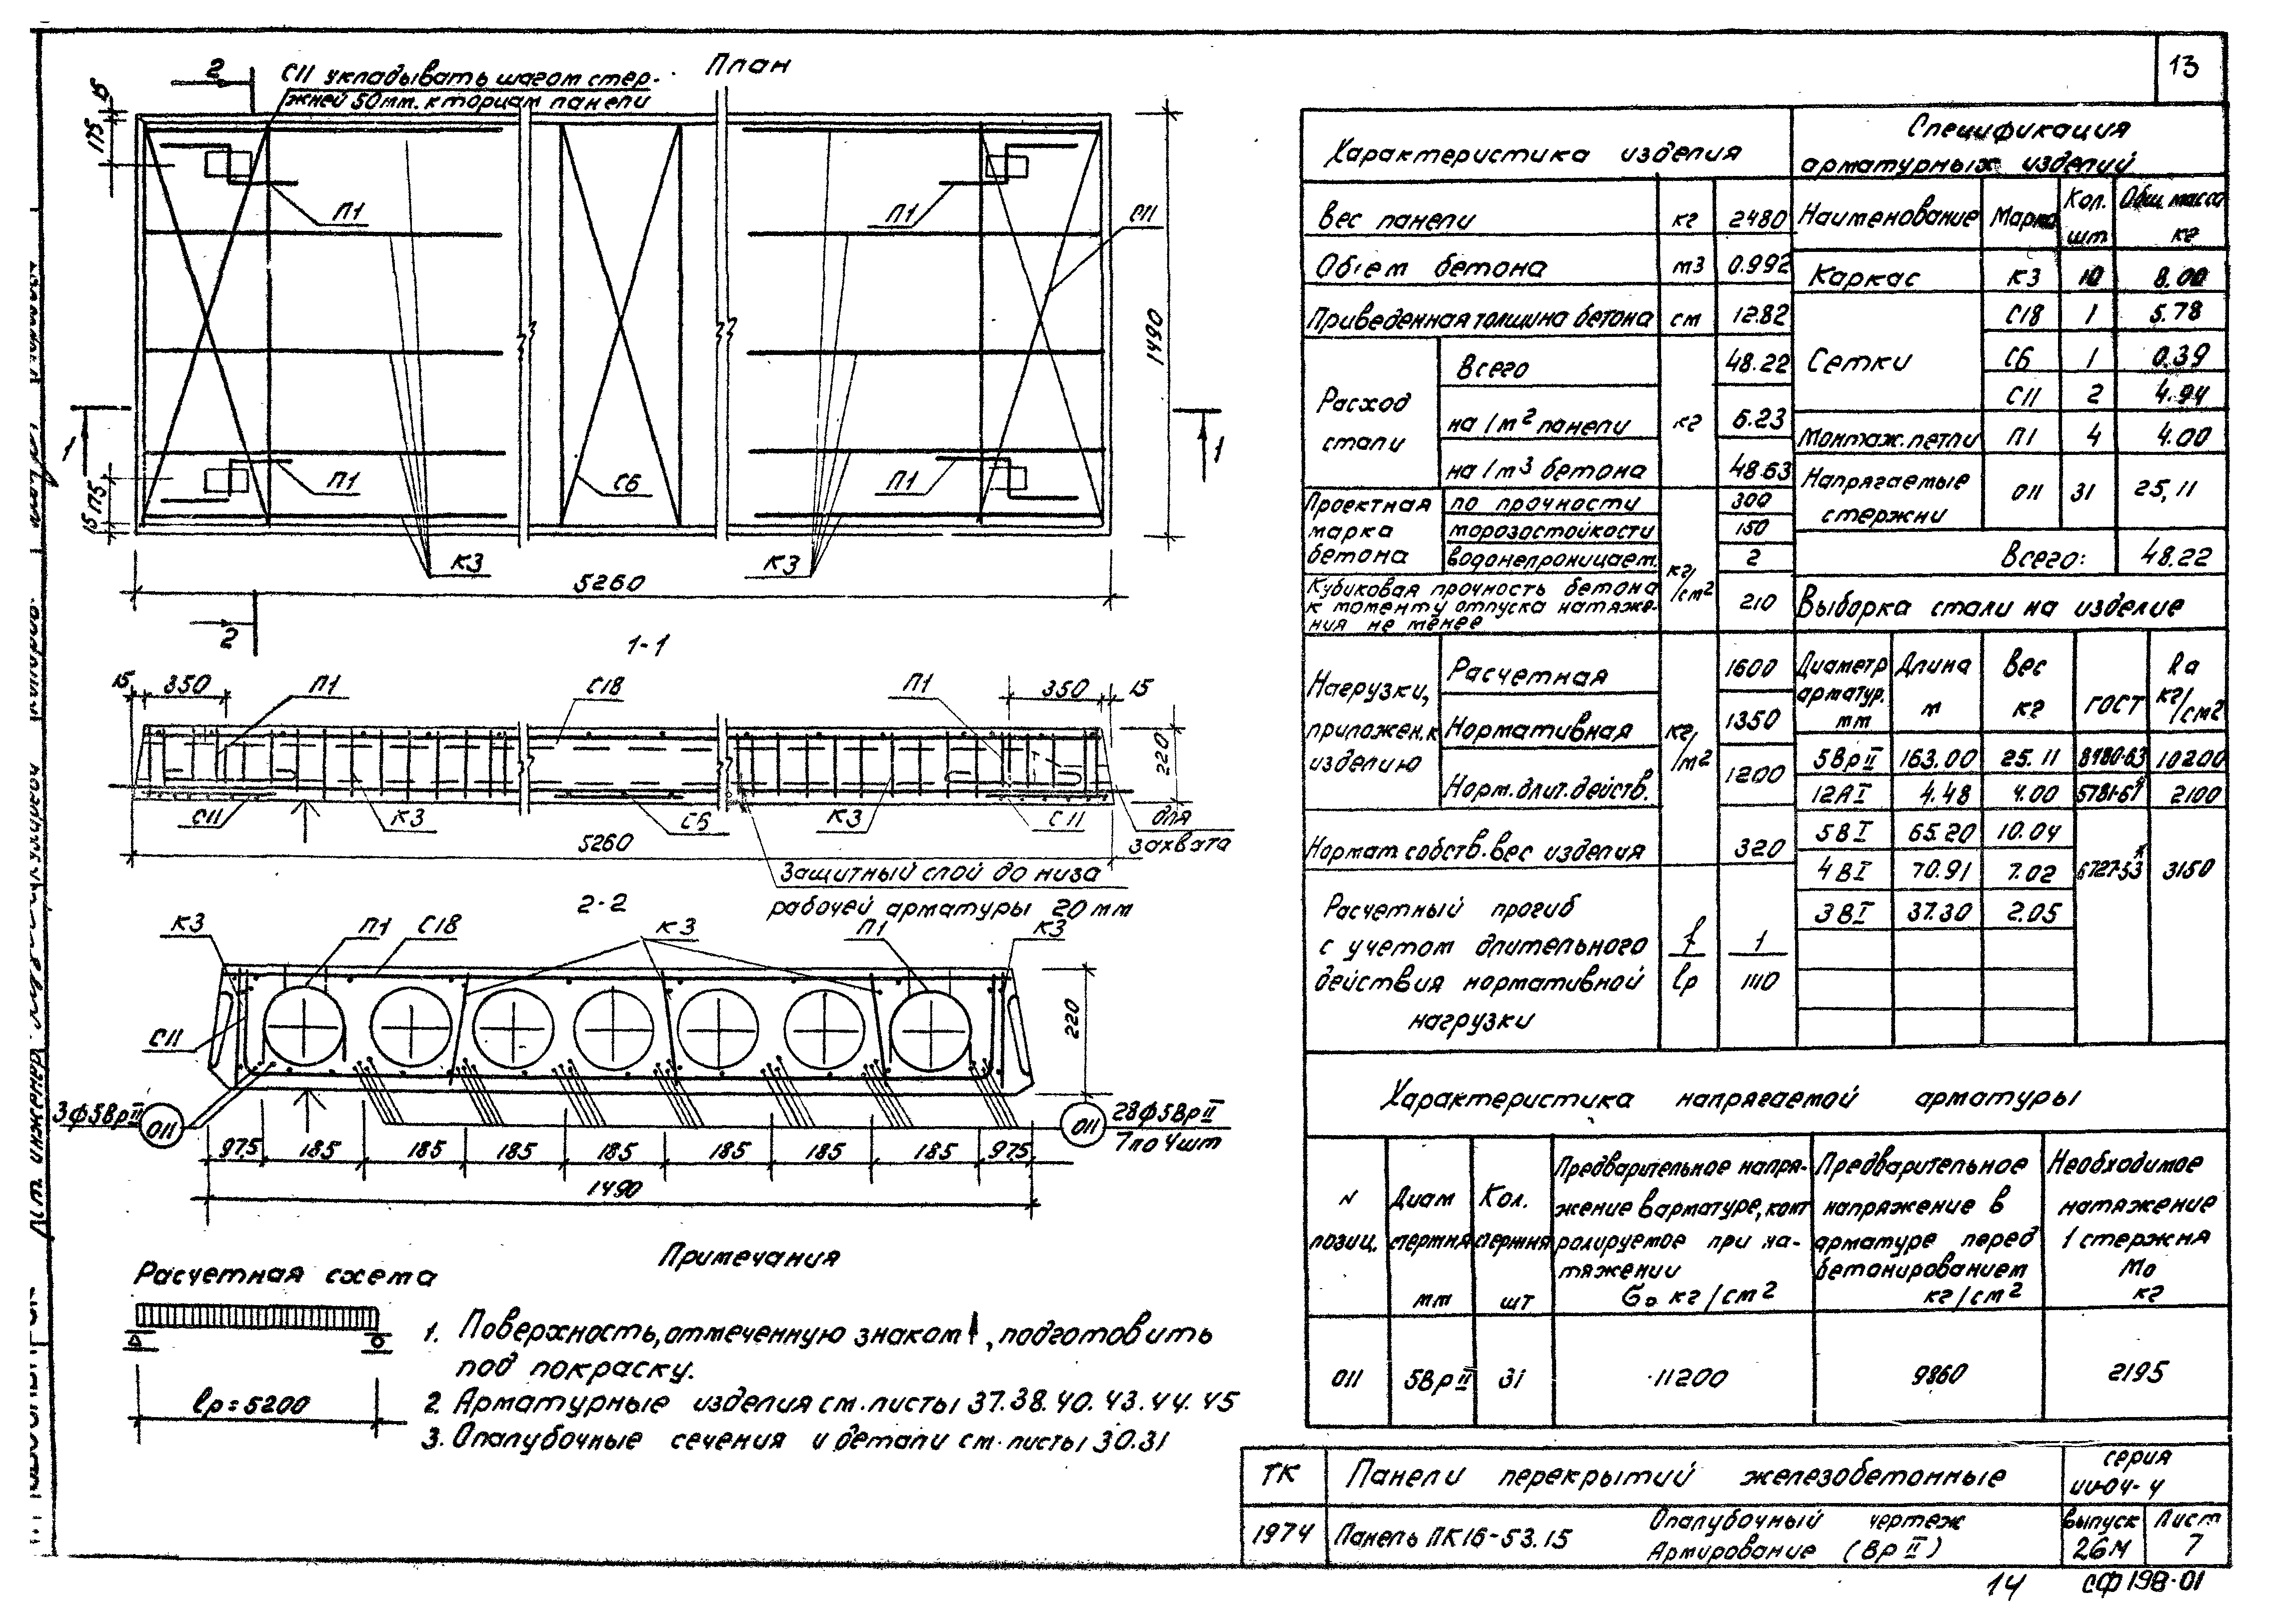 13
План
С11 укладывать шагом стер-
жней 50мм. к торцам панели
2
15
175
П1
П1
С11
П1
П1
С6
1490
1
1
175
15
К3
К3
5260
2
1-1
15
350
П1
С18
П1
350
15
220
С11
К3
С6
К3
С11
для
захвата
5260
Защитный слой до низа
рабочей арматуры 20мм
2-2
К3
П1
С18
К3
П1
К3
С11
220
3ф5ВрII
011
011
28ф5ВрII
7по4шт
97.5
185
185
185
185
185
185
185
97.5
1490
Расчетная схема
lр=5200
Примечания
1. Поверхность, отмеченную знаком , подготовить
под покраску.
2. Арматурные изделия см. листы 37.38.40.43.44.45
3. Опалубочные сечения и детали см. листы 30.31
Характеристика изделия
Вес панели кг 2480
Объем бетона м3 0.992
Приведенная толщина бетона см 12.82
Расход стали кг
Всего 48.22
на 1м2 панели 6.23
на 1м3 бетона 48.63
Проектная марка бетона
по прочности 300
морозостойкости 150
водонепроницаем. 2
кг/см2
Кубиковая прочность бетона
к моменту отпуска натяже-
ния не менее
210
Нагрузки,
приложен.к
изделию
Расчетная 1600
Нормативная 1350
Норм.длит.действ. 1200
кг/м2
Нормат.собств.вес изделия 320
Расчетный прогиб
с учетом длительного
действия нормативной
нагрузки
f/lр
1/1110
Спецификация
арматурных изделий
Наименование Марка Кол. шт Общ. масса кг
Каркас К3 10 8.00
Сетки С18 1 5.78
С6 1 0.39
С11 2 4.94
Монтаж.петли П1 4 4.00
Напрягаемые стержни 011 31 25,11
Всего: 48.22
Выборка стали на изделие
Диаметр арматур. мм Длина м Вес кг ГОСТ Rа кг/см2
5ВрII 163.00 25.11 8480-63 10200
12АI 4.48 4.00 5781-61 2100
5ВI 65.20 10.04
4ВI 70.91 7.02 6727-53 3150
3ВI 37.30 2.05
Характеристика напрягаемой арматуры
N позиц.
Диам стержня мм
Кол. стержня шт
Предварительное напря-
жение в арматуре, конт
ролируемое при на-
тяжении
бо кг/см2
Предварительное
напряжение в
арматуре перед
бетонированием
кг/см2
Необходимое
натяжение
1 стержня
Мо
кг
011 5ВрII 31 11200 9860 2195
ТК Панели перекрытий железобетонные серия ИИ-04-4
1974 Панель ПК16-53.15 Опалубочный чертеж
Армирование (ВрII)
выпуск 26М
Лист 7
14 СФ198-01